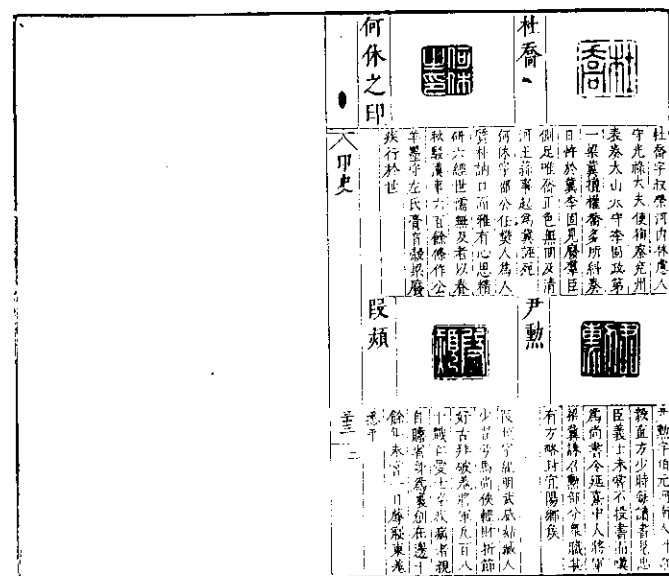 杜喬
杜喬
杜喬字叔榮河内林慮人
守光祿大夫使徇察兗州
表奏太山太守李固政第
一梁冀擅權喬多所糾奏
日忤於冀李固見廢群臣
側足唯喬正色無回及清
河王蒜事起為冀誣死
何休之印
何休之印
何休字邵公任樊人為人
質朴訥口而雅有心思精
研六經世儒無及者以春
秋駁漢事六百餘條作公
羊墨守左氏膏肓穀梁廢
疾行於世
尹勳
尹勳字伯元河南人
毅直方少時每讀書見忠
臣義士未嘗不投書而嘆
為尚書令延熹中大將軍
梁冀誅召勳部分眾職甚
有方略封宜陽鄉侯
段熲
段熲
段熲字紀明武威姑臧人
少習弓馬尚俠輕財折節
好古拜破羌將軍凡百八
十戰行愛士卒疾病者親
自瞻省身為裹創在邊十
餘年未嘗一日蓐寢東羌
悉平
印史